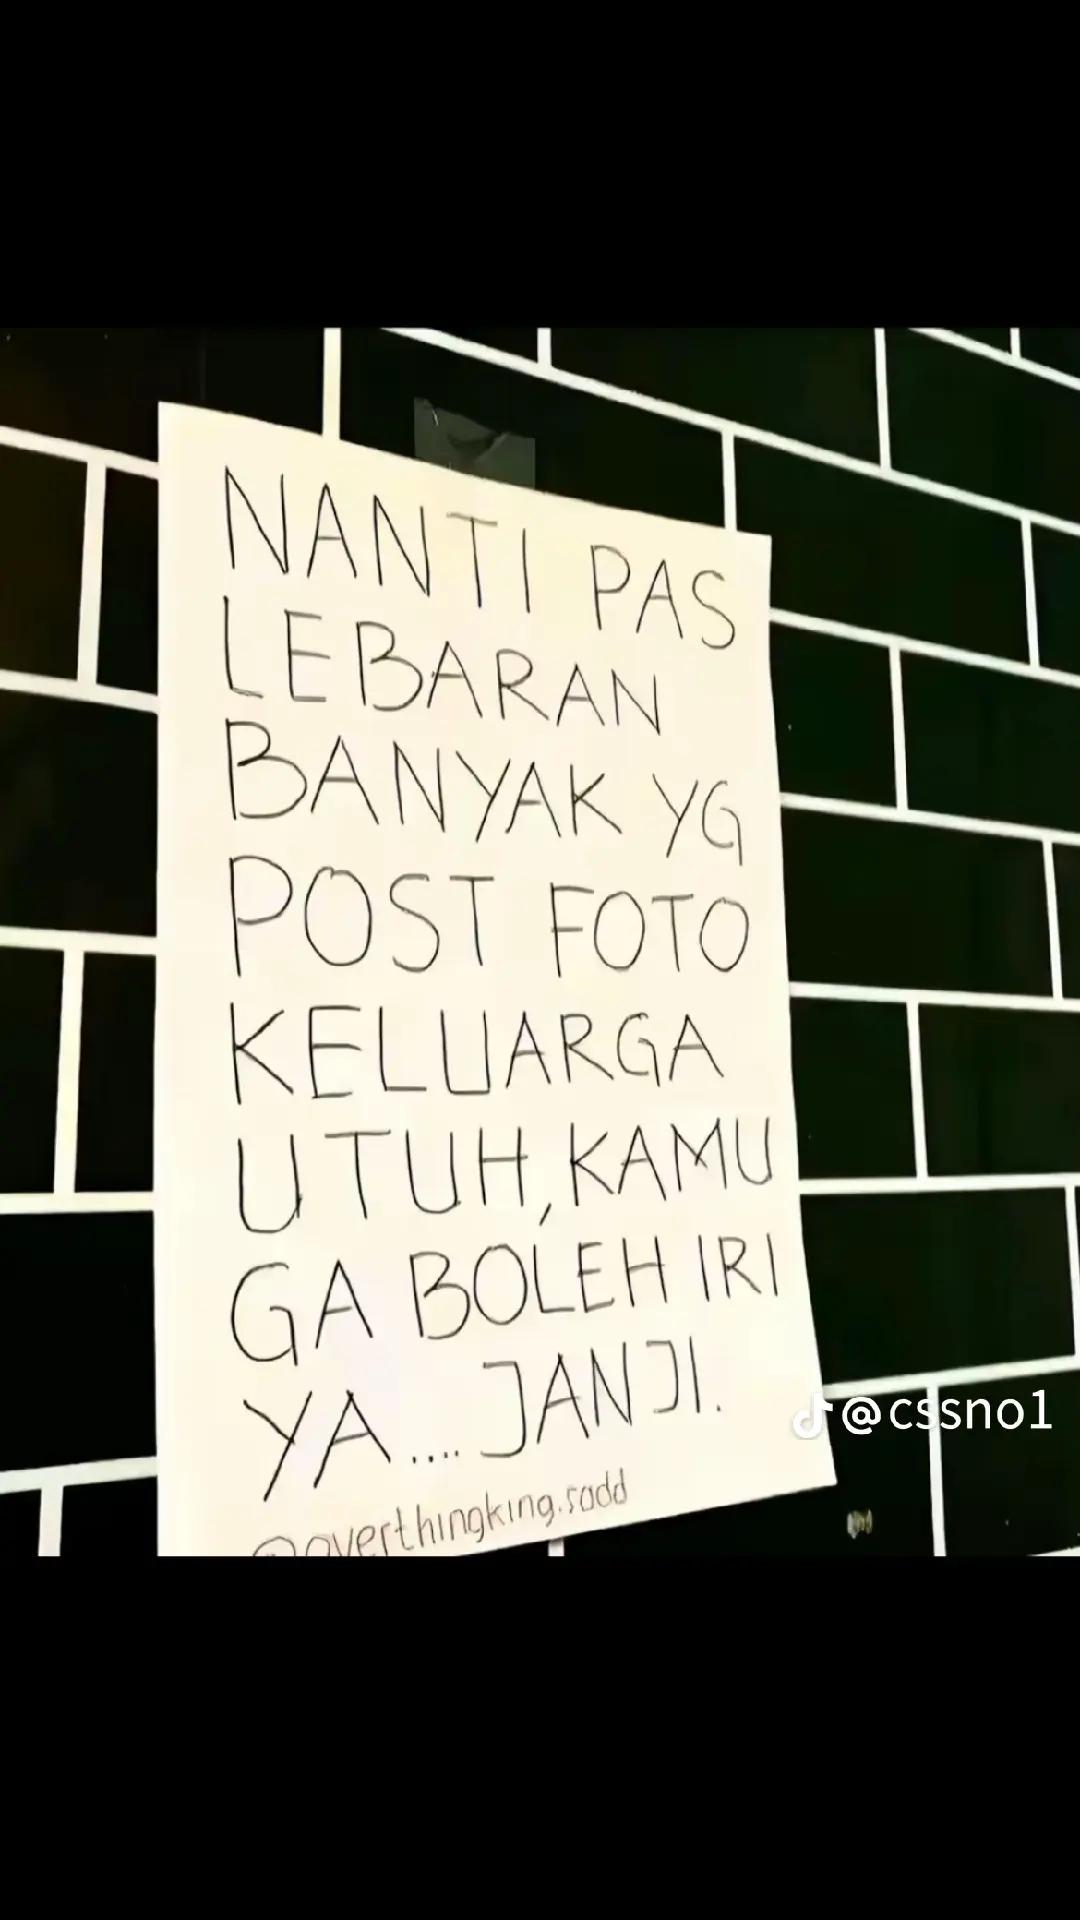 NANTI PAS
LEBARAN
BANYAK YG
POST FOTO
KELUARGA
UTUH, KAMU
GA BOLEH IRI
YA.... JANJI.
@overthingking.sadd
@cssno1